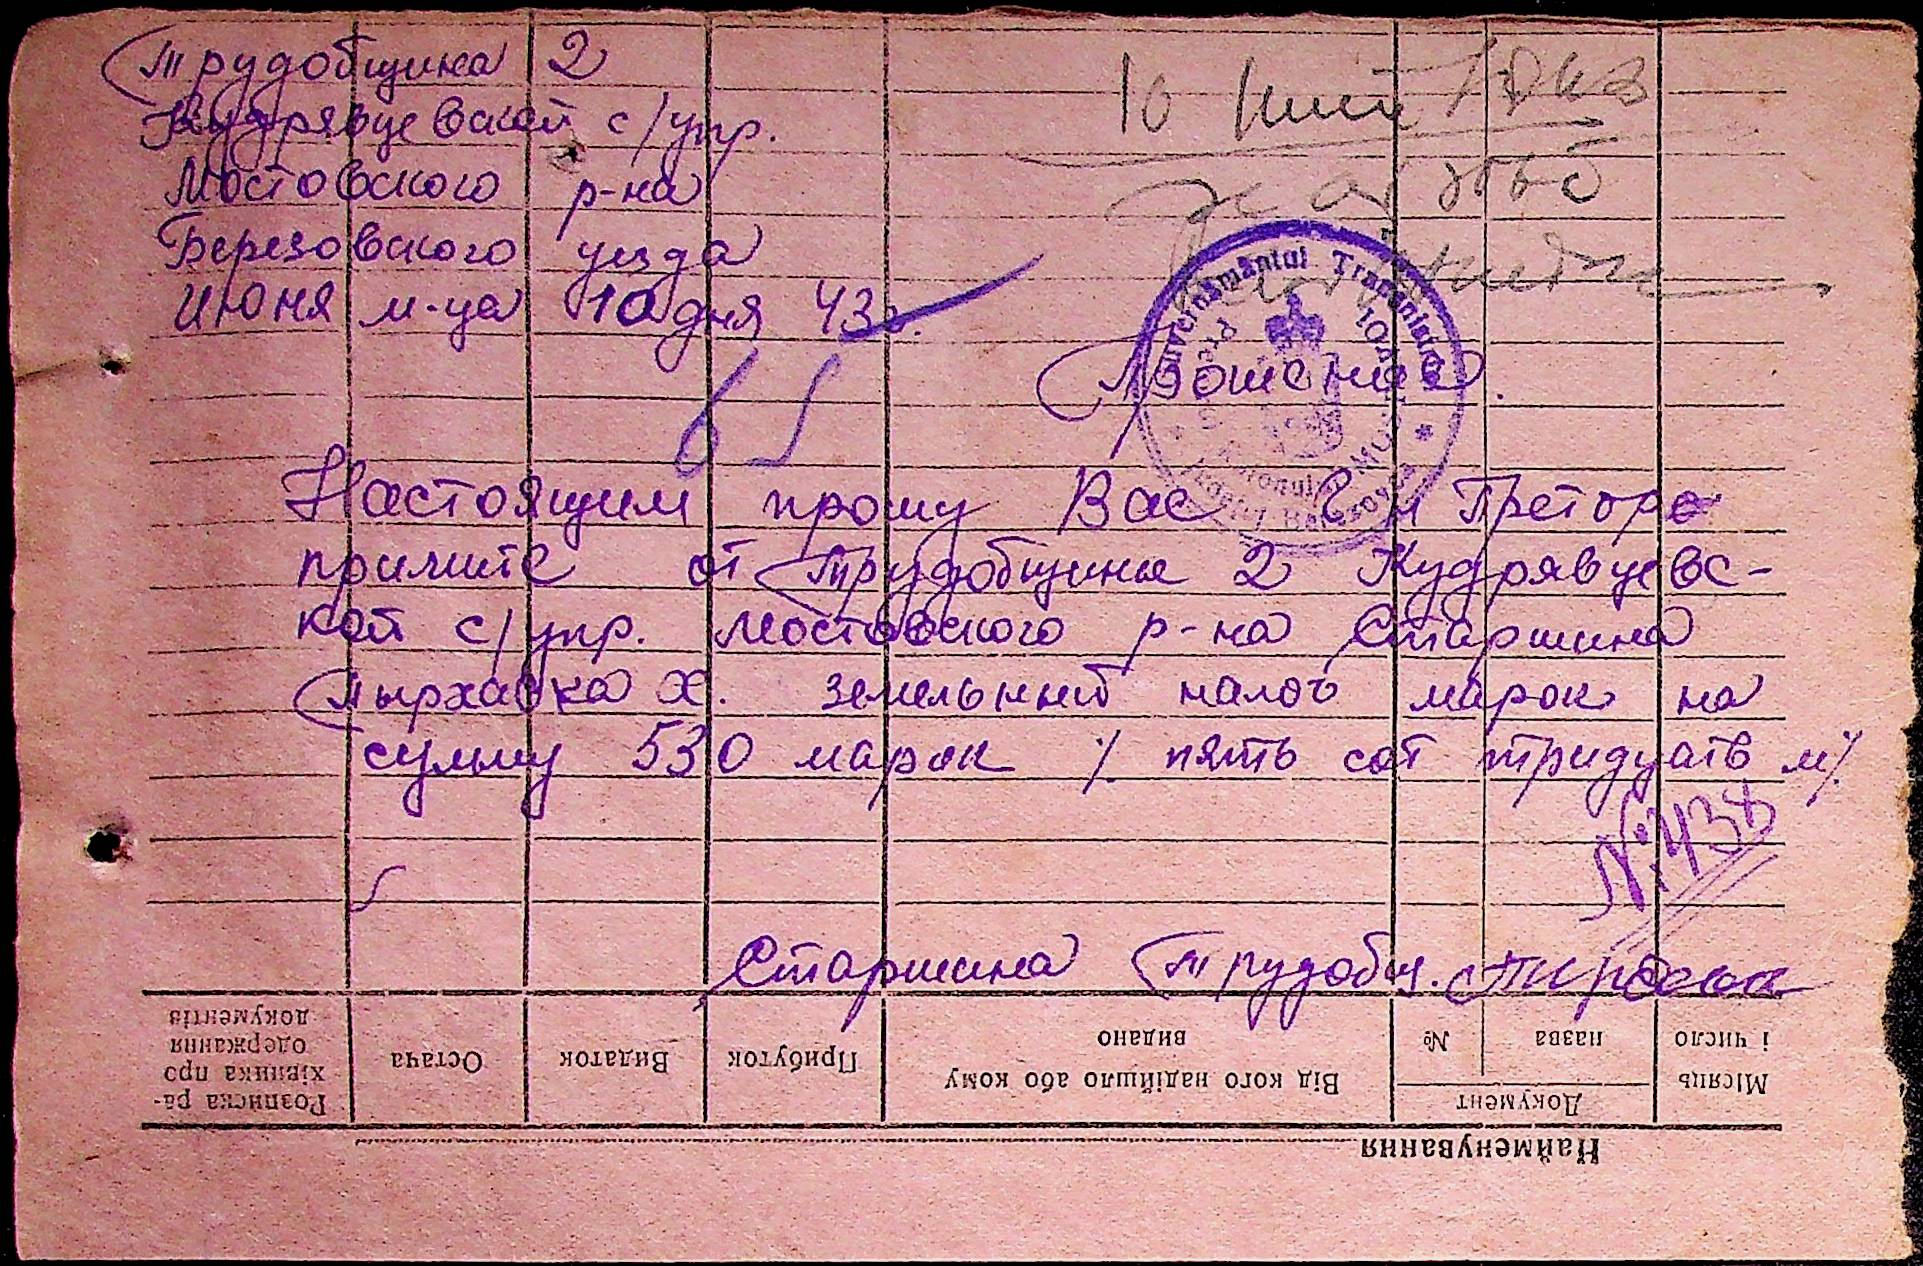 Трудобщина 2
Кудрявцевской с/упр.
Мостовского р-на
Березовского уезда
Июня м-ца 10 дня 43г.
10
Guvernământul Transnistriei
Прошение.
Настоящим прошу Вас Г-н Претор
примите от Трудобщины 2 Кудрявцевс-
кой с/упр. Мостовского р-на Старшина
Тырхавка Х. земельный налог марок на
сумму 530 марок /. пять сот тридцать м/.
№ 438
Старшина Трудобщ.
Найменування
Місяць і число
Документ
назва
№
Від кого надійшло або кому видано
Прибуток
Видаток
Остача
Розписка ра-
хівника про
одержання
документів